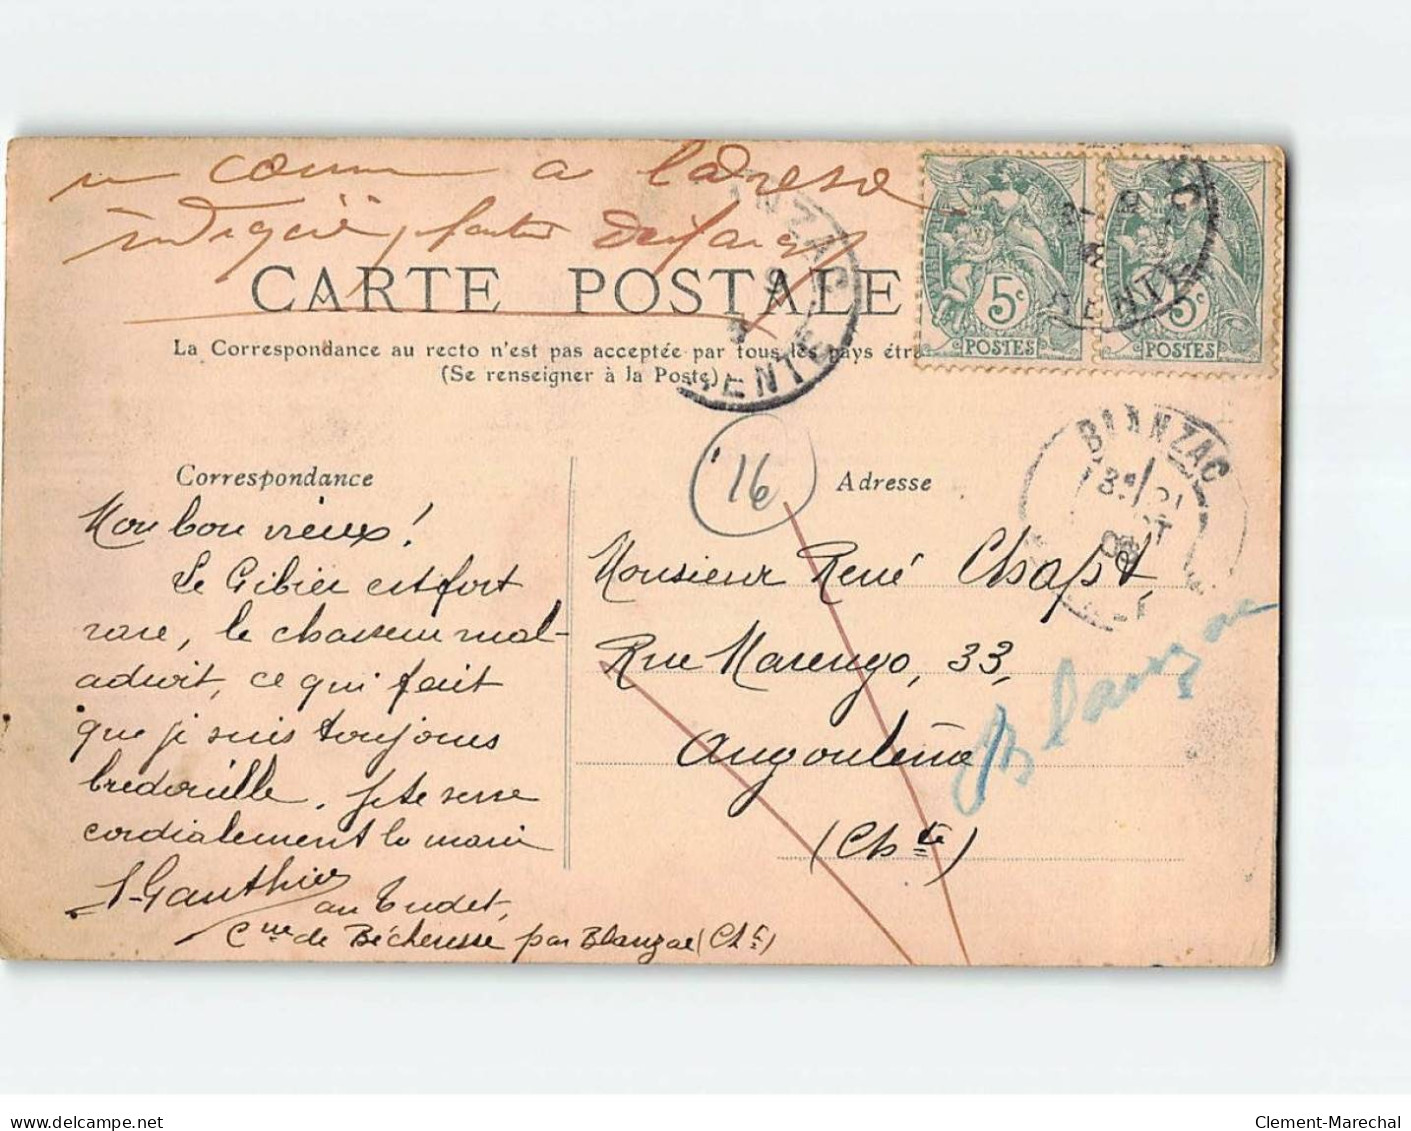 inconnu a l'adresse
indiquée,
CARTE POSTALE
La Correspondance au recto n'est pas acceptée par tous les pays étra
(Se renseigner à la Poste)
5c
POSTES
5c
POSTES
BLANZAC
16
Correspondance
Mon bon vieux!
Le Gibier est fort
rare, le chasseur mal-
adroit, ce qui fait
que je suis toujours
bredouille. Je te serre
cordialement la main
Gauthier
au Tudet,
Cne de Bécheresse par Blanzac (Chte)
Adresse
Monsieur René Chapt,
Rue Marengo, 33,
Angoulême
(Chte)
Blanzac
www.delcampe.net
Clement-Marechal